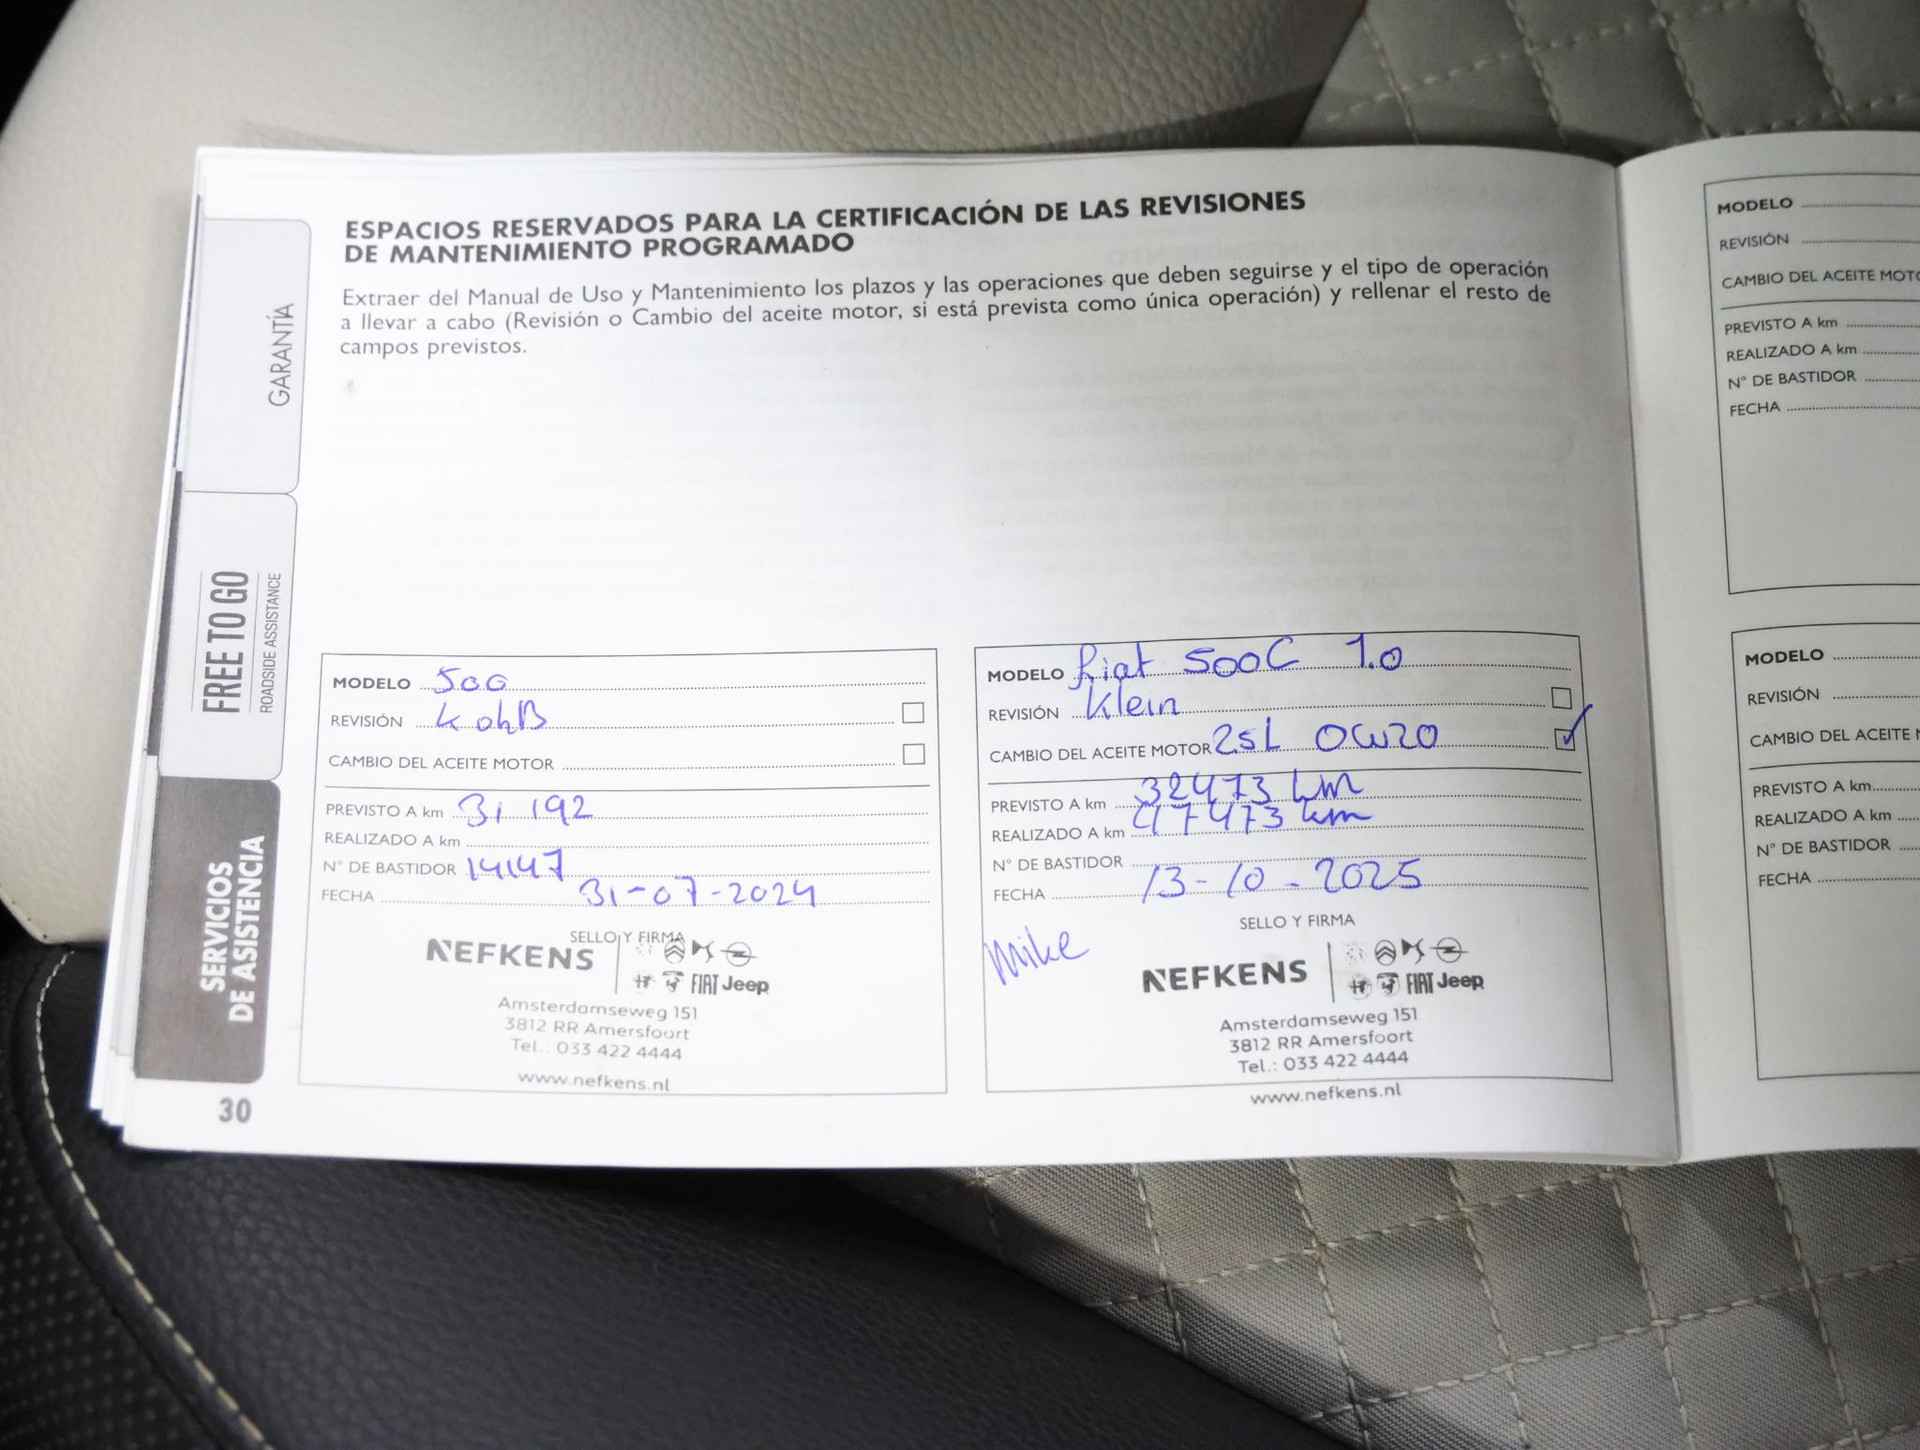 ESPACIOS RESERVADOS PARA LA CERTIFICACIÓN DE LAS REVISIONES
DE MANTENIMIENTO PROGRAMADO
Extraer del Manual de Uso y Mantenimiento los plazos y las operaciones que deben seguirse y el tipo de operación
a llevar a cabo (Revisión o Cambio del aceite motor, si está prevista como única operación) y rellenar el resto de
campos previstos.
GARANTÍA
FREE TO GO
ROADSIDE ASSISTANCE
SERVICIOS
DE ASISTENCIA
30
MODELO 500
REVISIÓN
CAMBIO DEL ACEITE MOTOR
PREVISTO A km 31 192
REALIZADO A km
N° DE BASTIDOR 14147
FECHA 31-07-2024
SELLO Y FIRMA
NEFKENS
FIAT Jeep
Amsterdamseweg 151
3812 RR Amersfoort
Tel.: 033 422 4444
www.nefkens.nl
MODELO fiat 500C 1.0
REVISIÓN Klein
CAMBIO DEL ACEITE MOTOR 2SL 0W20
PREVISTO A km 32473 km
REALIZADO A km 47473 km
N° DE BASTIDOR
FECHA 13-10-2025
SELLO Y FIRMA
Mike
NEFKENS
FIAT Jeep
Amsterdamseweg 151
3812 RR Amersfoort
Tel.: 033 422 4444
www.nefkens.nl
MODELO
REVISIÓN
CAMBIO DEL ACEITE MOTO
PREVISTO A km
REALIZADO A km
N° DE BASTIDOR
FECHA
MODELO
REVISIÓN
CAMBIO DEL ACEITE
PREVISTO A km
REALIZADO A km
N° DE BASTIDOR
FECHA